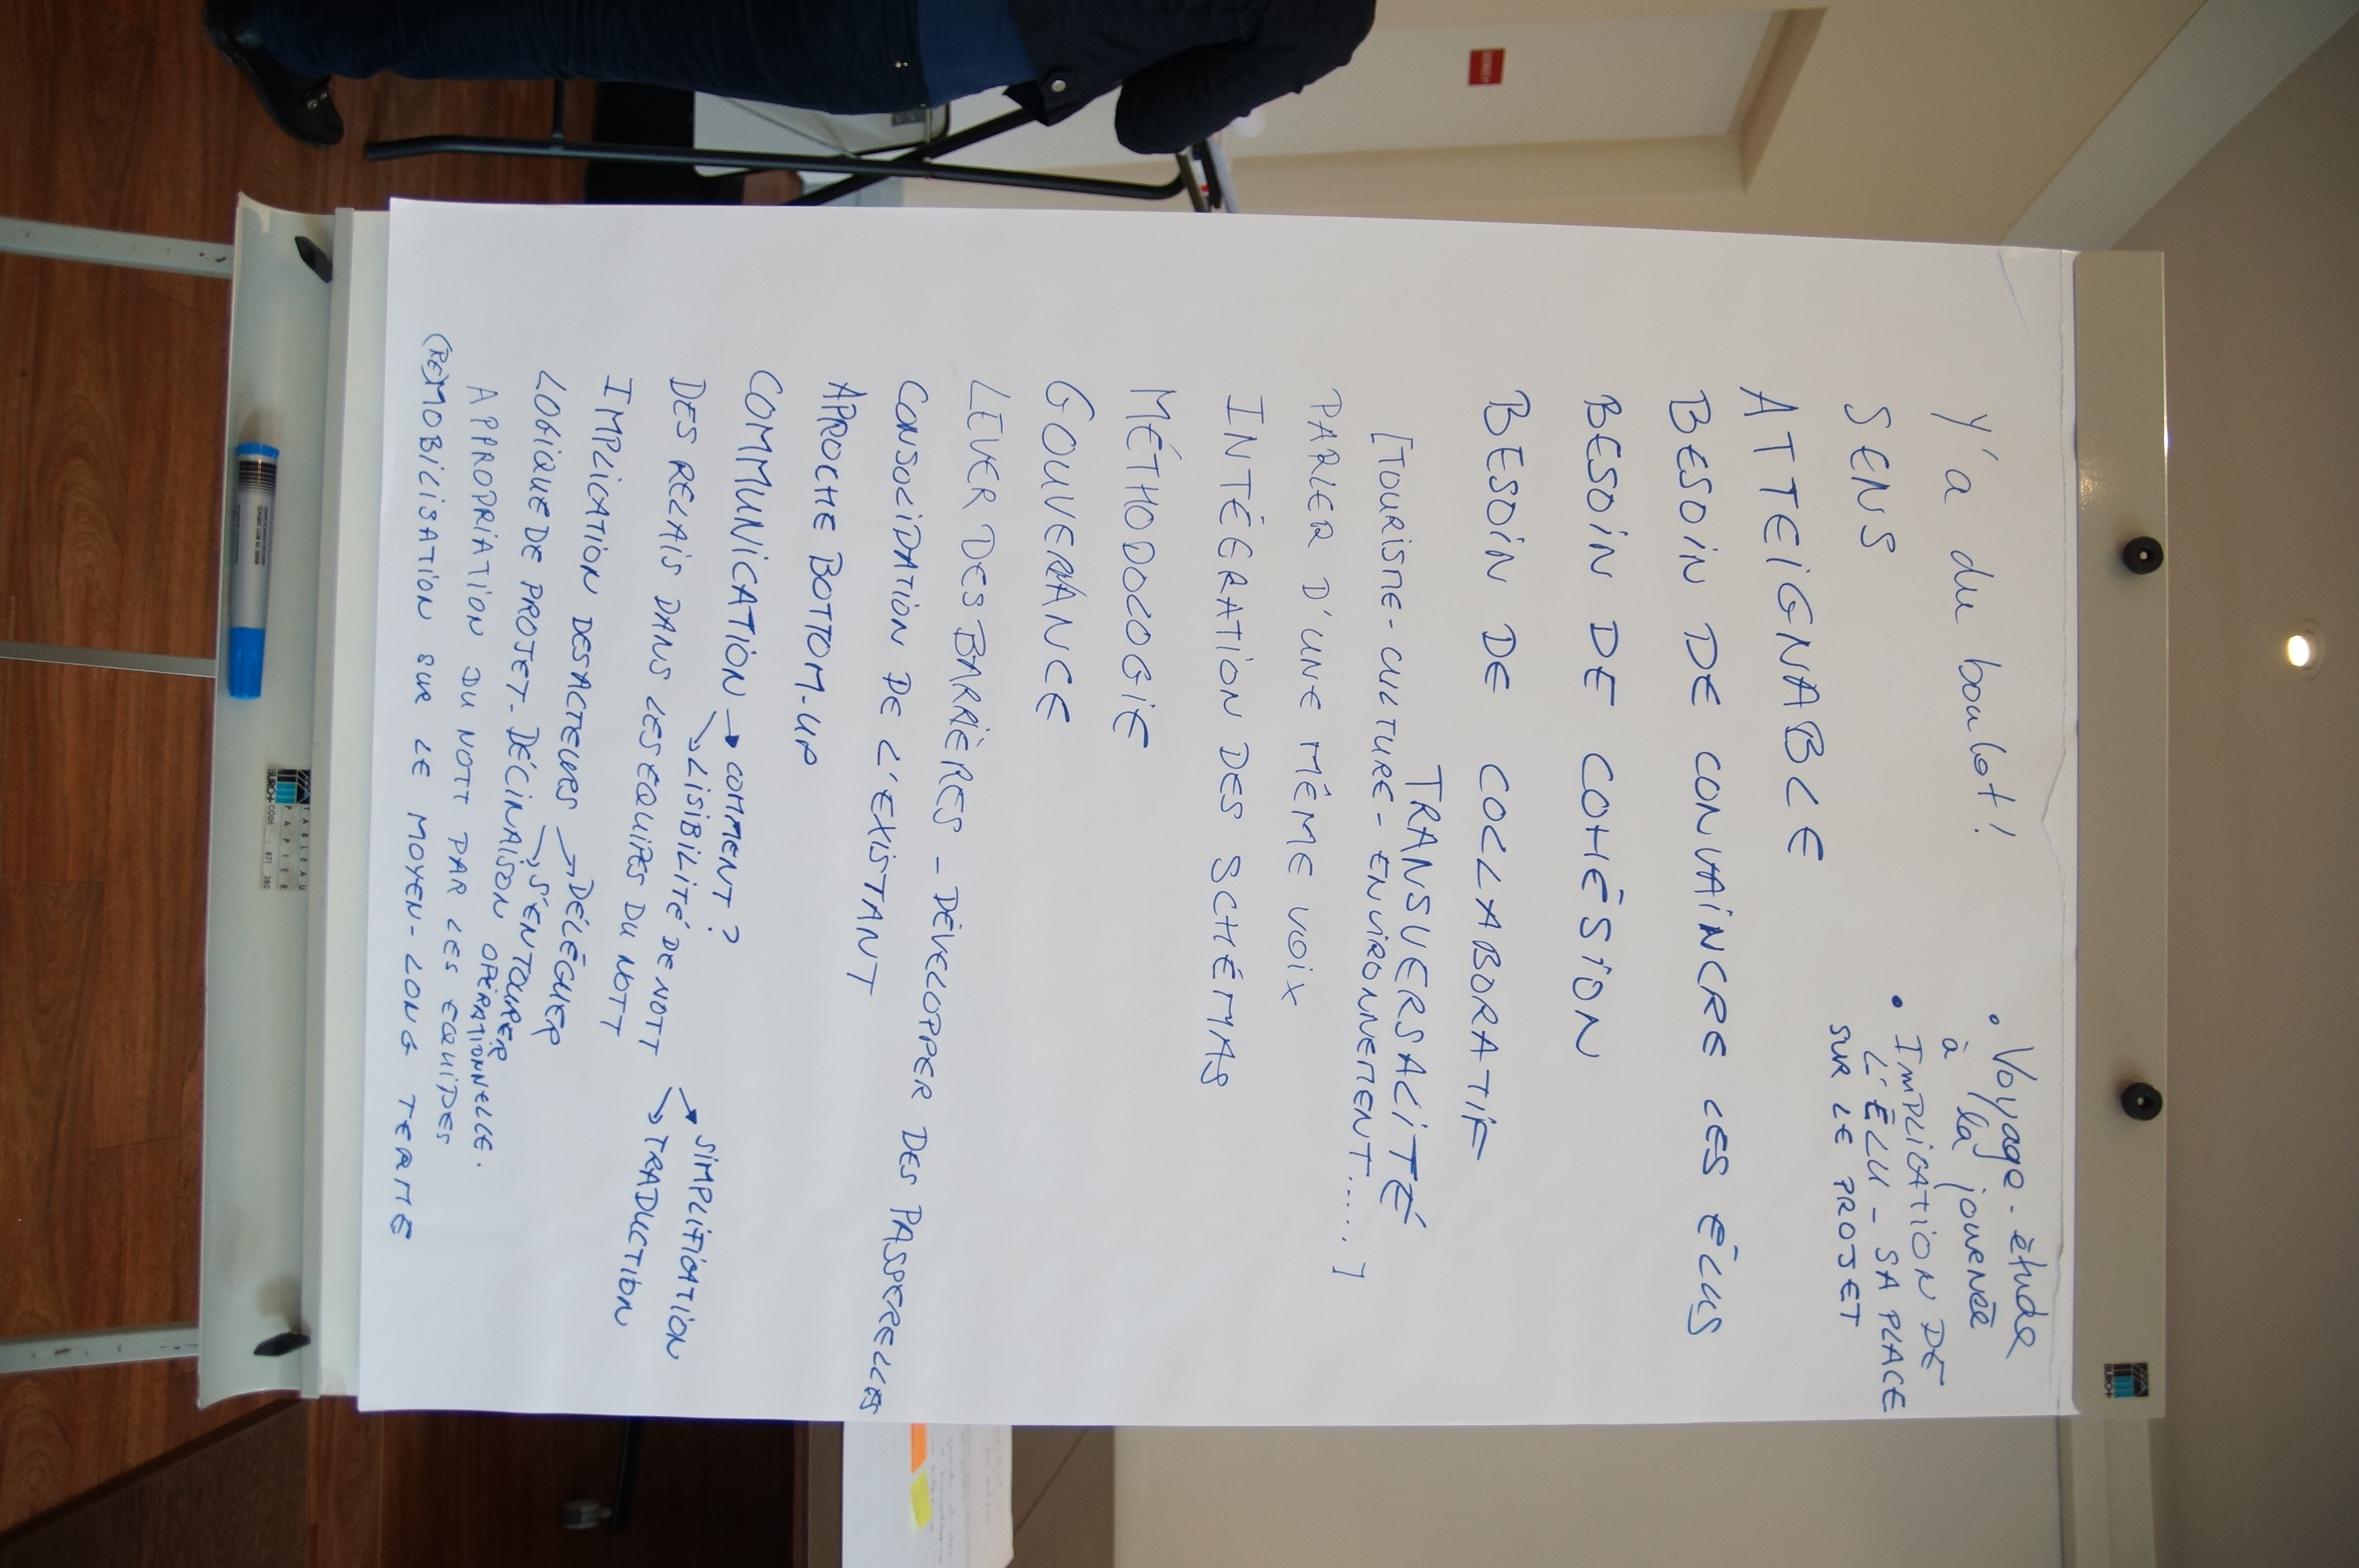 Y'a du boulot!
• Voyage-étude
à la journée
• IMPLICATION DE
L'ÉLU - SA PLACE
SUR LE PROJET
SENS
ATTEIGNABLE
BESOIN DE CONVAINCRE LES ÉLUS
BESOIN DE COHÉSION
BESOIN DE COLLABORATIF
TRANSVERSALITÉ
[TOURISME-CULTURE-ENVIRONNEMENT.....]
PARLER D'UNE MÊME VOIX
INTÉGRATION DES SCHÉMAS
MÉTHODOLOGIE
GOUVERNANCE
LEVER DES BARRIÈRES - DÉVELOPPER DES PASSERELLES
CONSOLIDATION DE L'EXISTANT
APROCHE BOTTOM-UP
COMMUNICATION → COMMENT ?
↘ LISIBILITÉ DE NOTT → SIMPLIFICATION
↘ TRADUCTION
DES RELAIS DANS LES EQUIPES DU NOTT
IMPLICATION DES ACTEURS → DÉLÉGUER
↘ S'ENTOURER
LOGIQUE DE PROJET - DÉCLINAISON OPÉRATIONNELLE.
APPROPRIATION DU NOTT PAR LES EQUIPES
(RE)MOBILISATION SUR LE MOYEN-LONG TERME
TABLEAU
PAPIER
BURO+
CODE : 871 380
BURO+